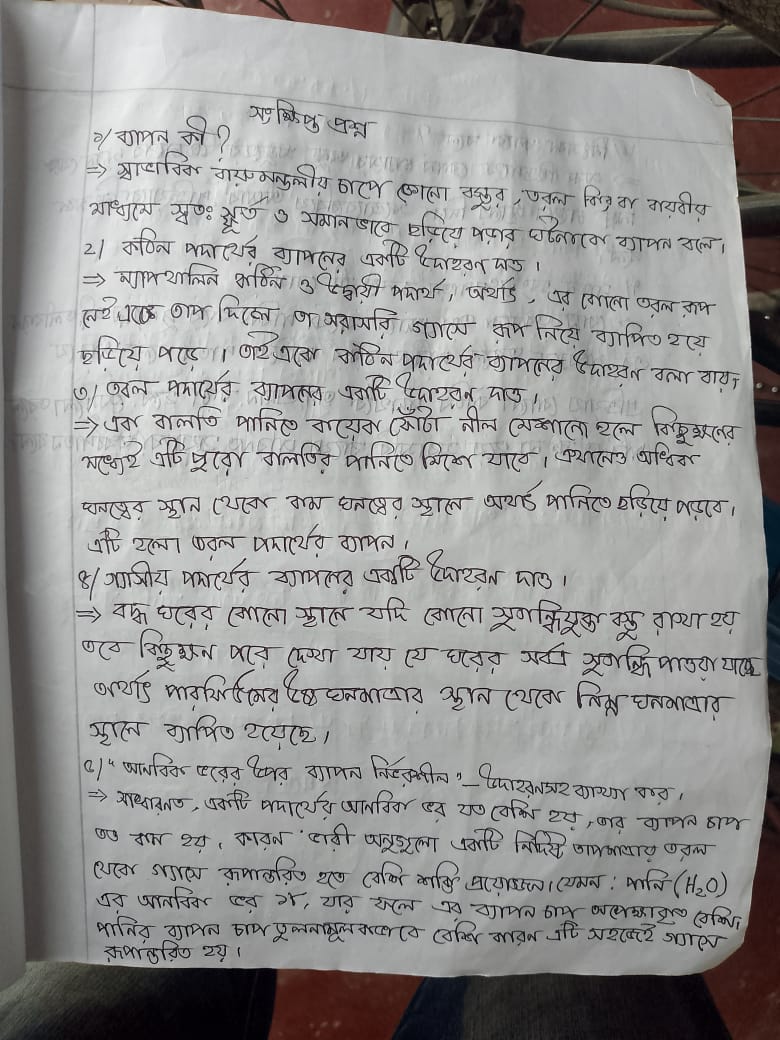 সংক্ষিপ্ত প্রশ্ন
১/ ব্যাপন কী?
⇒ স্বাভাবিক বায়ুমন্ডলীয় চাপে কোনো বস্তুর, তরল কিংবা বায়বীয়
মাধ্যমে স্বতঃস্ফূর্ত ও সমানভাবে ছড়িয়ে পড়ার ঘটনাকে ব্যাপন বলে।
২/ কঠিন পদার্থের ব্যাপনের একটি উদাহরন দাও।
⇒ ন্যাপথালিন কঠিন ও উদ্বায়ী পদার্থ, অর্থাৎ, এর কোনো তরল রূপ
নেই এতে তাপ দিলে তা সরাসরি গ্যাসে রূপ নিয়ে ব্যাপিত হয়ে
ছড়িয়ে পড়ে। তাই একে কঠিন পদার্থের ব্যাপনের উদাহরন বলা যায়,
৩/ তরল পদার্থের ব্যাপনের একটি উদাহরন দাও।
⇒ এক বালতি পানিতে কয়েক ফোঁটা নীল মেশানো হলে কিছুক্ষনের
মধ্যেই এটি পুরো বালতির পানিতে মিশে যাবে। এখানেও অধিক
ঘনত্বের স্থান থেকে কম ঘনত্বের স্থানে অর্থাৎ পানিতে ছড়িয়ে পড়বে।
এটি হলো তরল পদার্থের ব্যাপন।
৪/ গ্যাসীয় পদার্থের ব্যাপনের একটি উদাহরন দাও।
⇒ বদ্ধ ঘরের কোনো স্থানে যদি কোনো সুগন্ধিযুক্ত বস্তু রাখা হয়
তবে কিছুক্ষন পরে দেখা যায় যে ঘরের সর্বত্র সুগন্ধি পাওয়া যাচ্ছে
অর্থাৎ পারফিউমের উচ্চ ঘনমাত্রার স্থান থেকে নিম্ন ঘনমাত্রার
স্থানে ব্যাপিত হয়েছে।
৫/ "আনবিক ভরের উপর ব্যাপন নির্ভরশীল" – উদাহরনসহ ব্যাখ্যা কর।
⇒ সাধারনত, একটি পদার্থের আনবিক ভর যত বেশি হয়, তার ব্যাপন চাপ
তত কম হয়, কারন ভারী অনুগুলো একটি নির্দিষ্ট তাপমাত্রায় তরল
থেকে গ্যাসে রূপান্তরিত হতে বেশি শক্তি প্রয়োজন। যেমন : পানি (H₂O)
এর আনবিক ভর ১৮, যার ফলে এর ব্যাপন চাপ অপেক্ষাকৃত বেশি।
পানির ব্যাপন চাপ তুলনামূলকভাবে বেশি কারন এটি সহজেই গ্যাসে
রূপান্তরিত হয়।